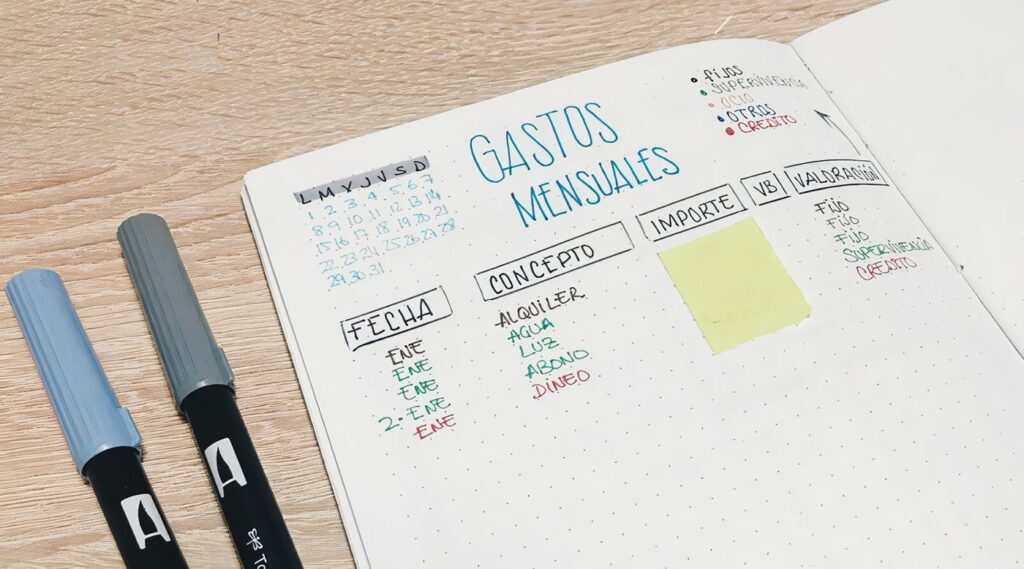 GASTOS
MENSUALES
• FIJOS
• SUPERVIVENCIA
• OCIO
• OTROS
• CREDITO
L M X J V S D
1 2 3 4 5 6 7
8 9 10 11 12 13 14
15 16 17 18 19 20 21
22 23 24 25 26 27 28
29 30 31
FECHA CONCEPTO IMPORTE VB VALORACIÓN
ENE ALQUILER FIJO
ENE AGUA FIJO
ENE LUZ FIJO
2. ENE ABONO SUPERVIVENCIA
ENE DINEO CREDITO